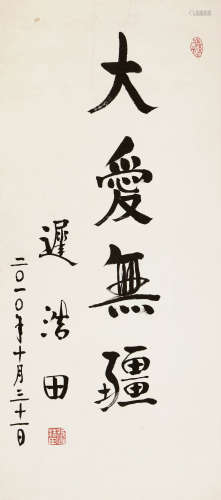 大愛無疆
遲浩田
二〇一〇年十月三十一日